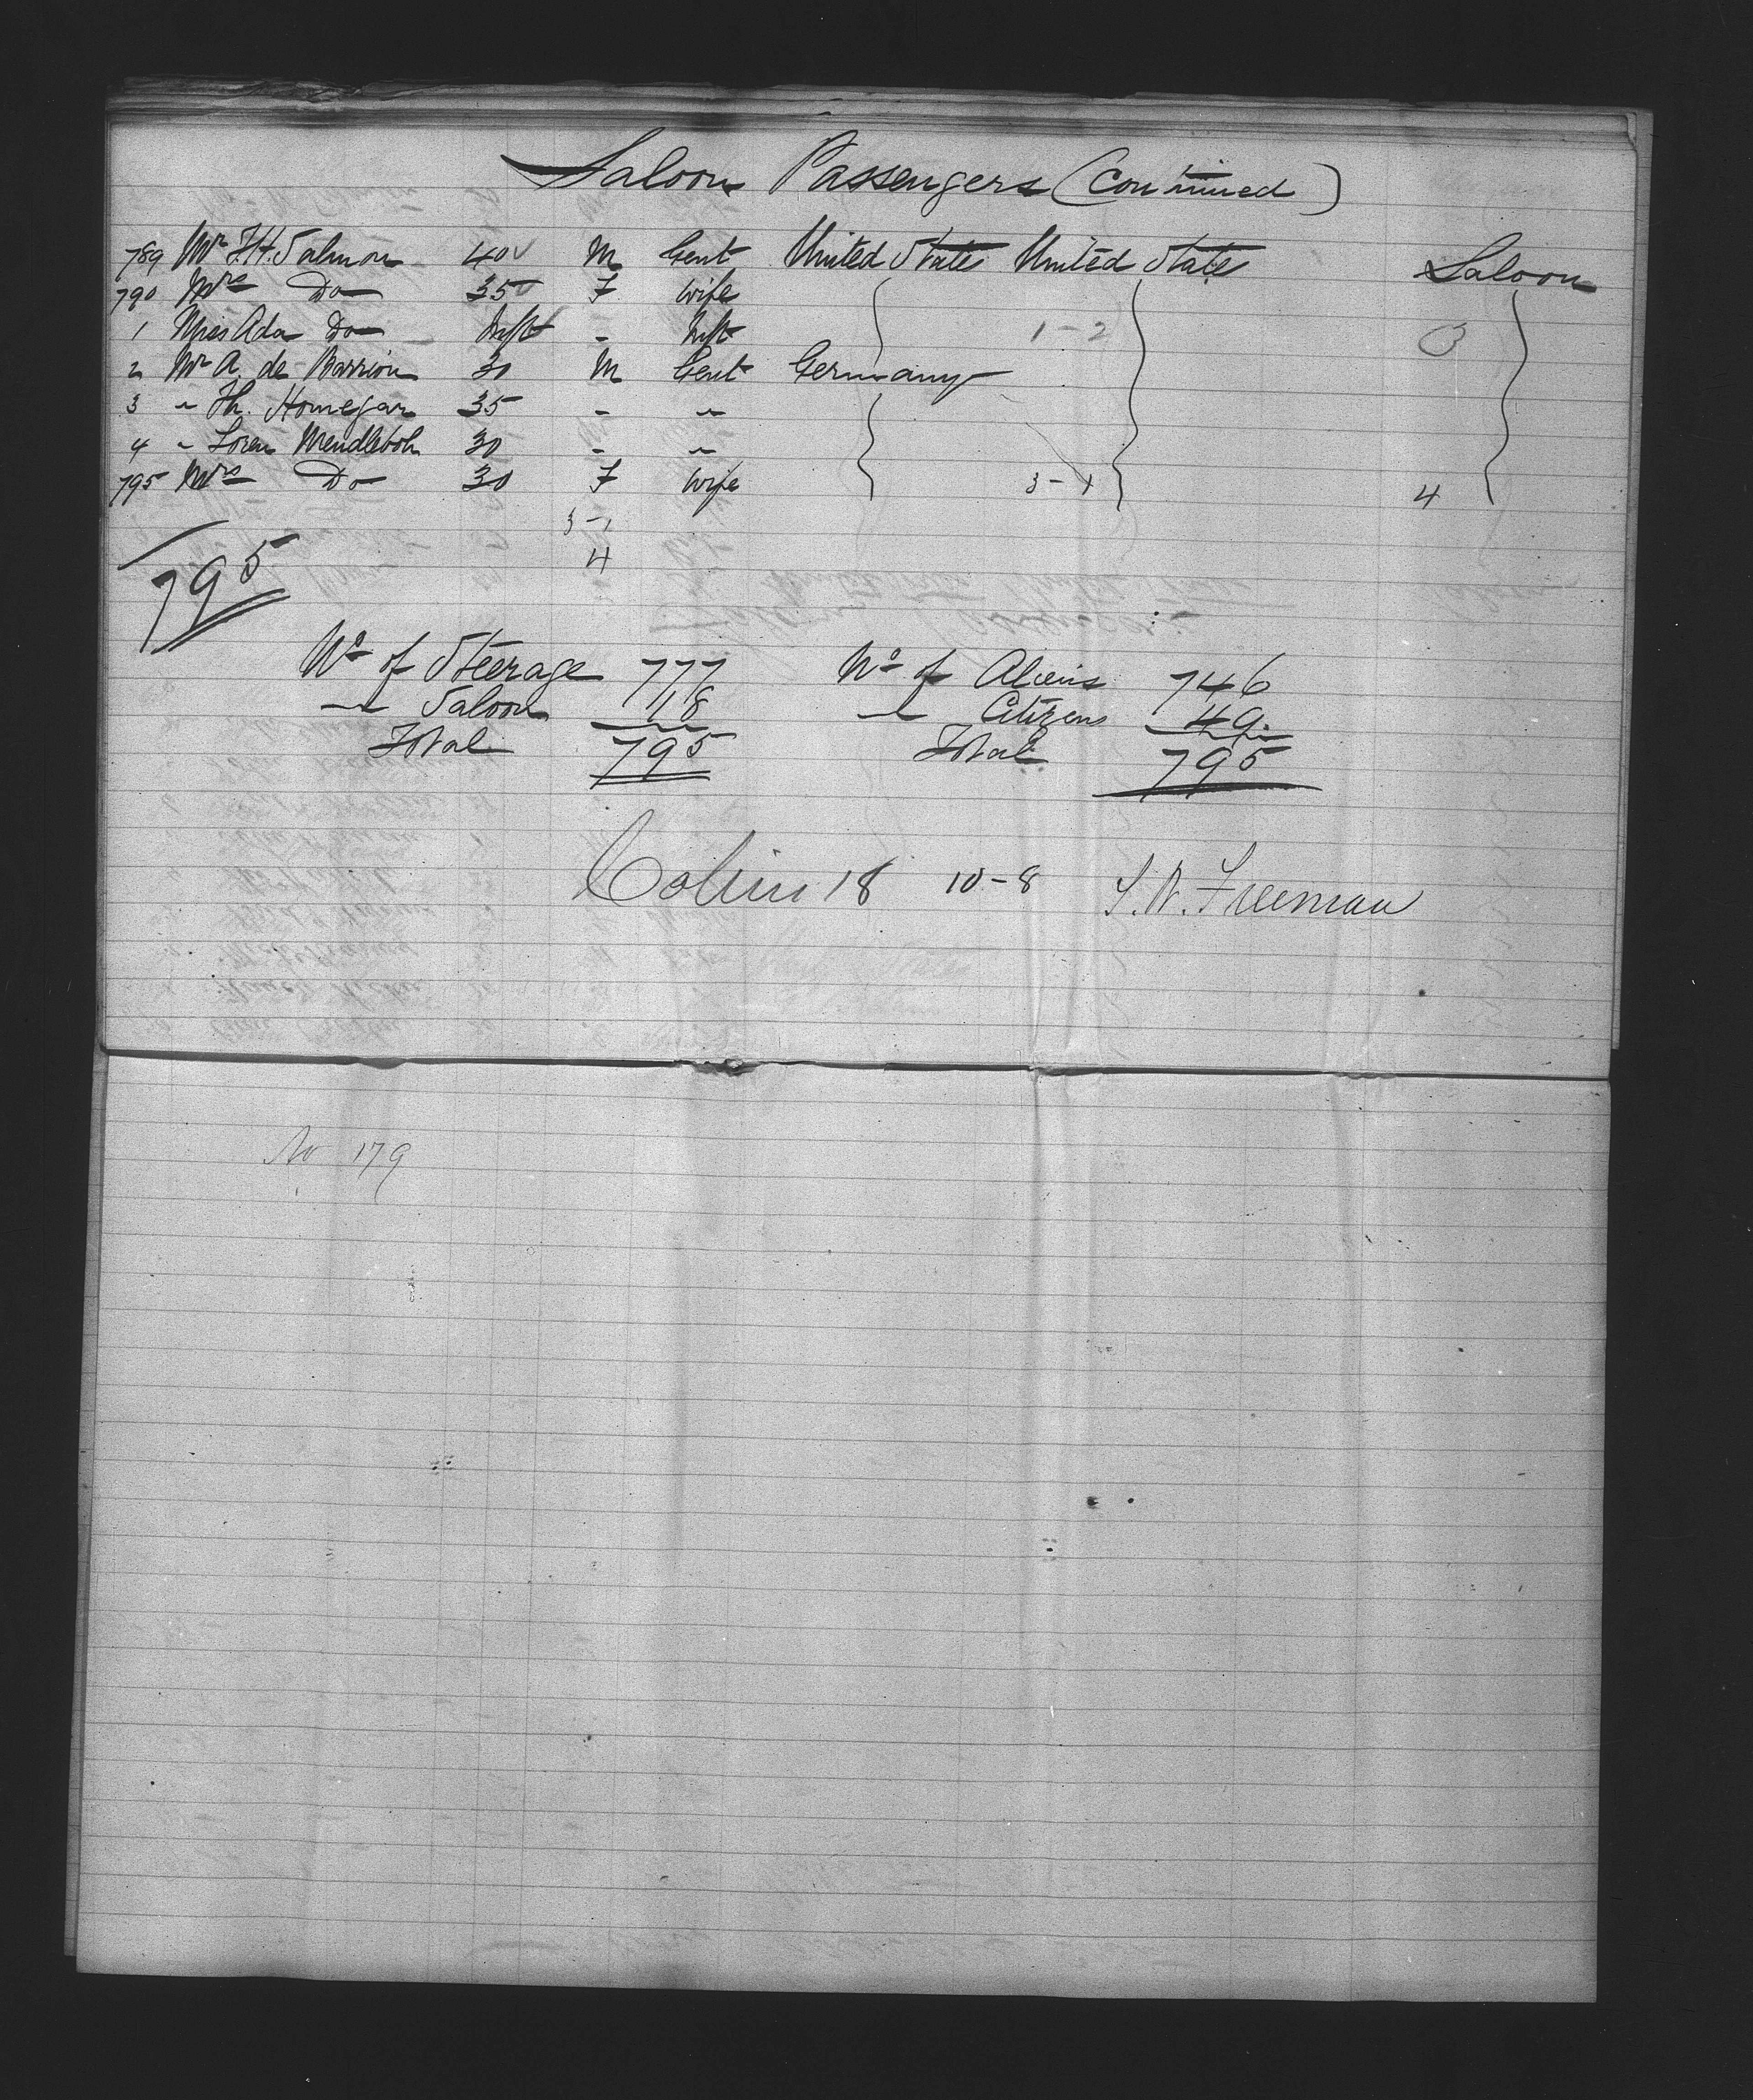 Saloon Passengers (Continued)
789 Mr F.H. Salmon 40 M Gent United States United States Saloon
790 Mrs Do 35 F Wife
1 Miss Ada Do Inft - Inft 1-2 3
2 Mr A. de Barrion 30 M Gent Germany
3 " Th. Homejar 35 - "
4 " Loren Mendleboh 30 - "
795 Mrs Do 30 F Wife 3-1 4
3-1
4
795
No of Steerage 777 No of Aliens 746
" Saloon 18 " Citizens 49
Total 795 Total 795
Cabin 18 10-8 S.W. Freeman
No 179